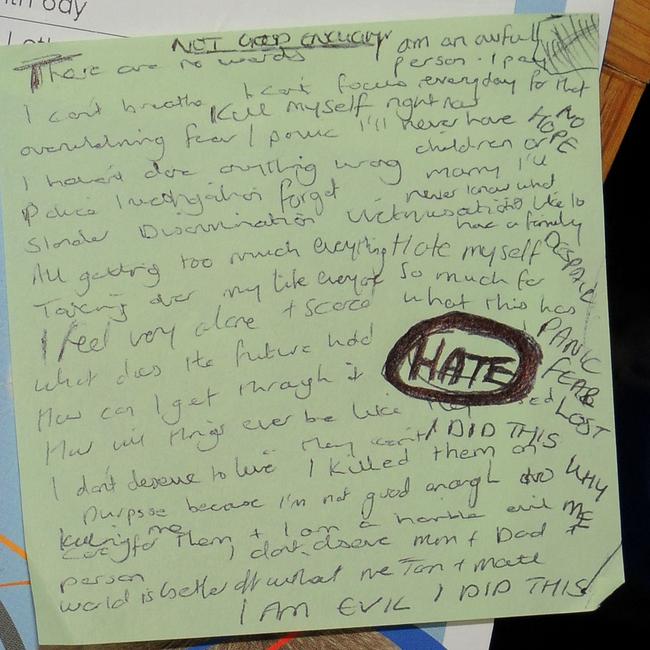 NOT GOOD ENOUGH
There are no words
am an awful
person . I pay
everyday for that
I can't breathe I can't focus
Kill myself right now
overwhelming fear / panic I'll never have
NO
HOPE
children or
I haven't done anything wrong marry I'll
Police Investigation forget never know what
Slander Discrimination Victimisation
like to
had a family
All getting too much everything Hate myself
DESPAIR
Taking over my life everyone so much for
what this has
I feel very alone + scared
PANIC
What does the future hold
HATE
FEAR
How can I get through it
LOST
How will things ever be like they used
They won't I DID THIS
I don't deserve to live I killed them on
WHY
purpose because I'm not good enough to
ME
care for them + I am a horrible evil
person I don't deserve mum + Dad +
world is better off without me
I AM EVIL I DID THIS